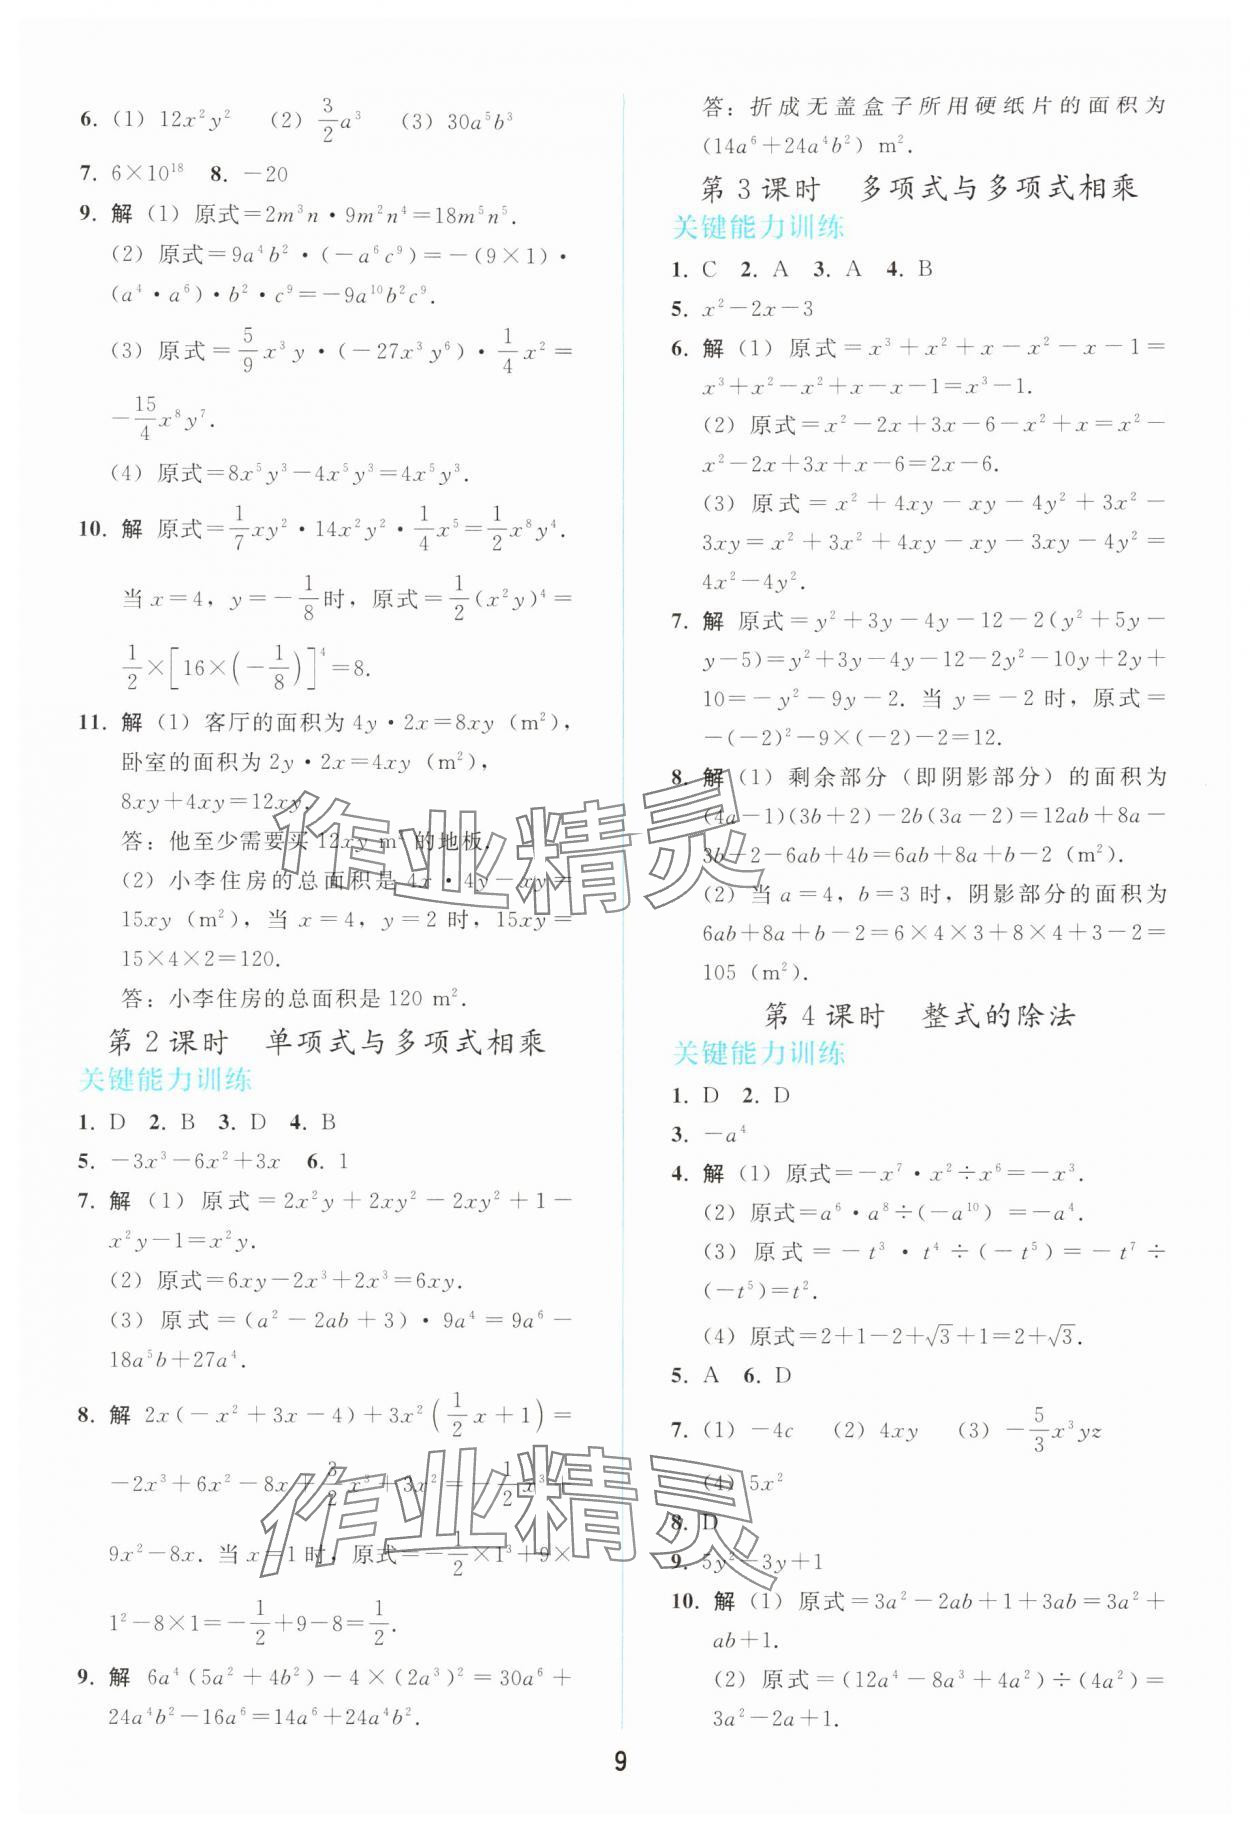 6. (1) 12x²y² (2) 3/2 a³ (3) 30a⁵b³
7. 6×10¹⁸ 8. －20
9. 解 (1) 原式＝2m³n·9m²n⁴＝18m⁵n⁵.
(2) 原式＝9a⁴b²·(－a⁶c⁹)＝－(9×1)·
(a⁴·a⁶)·b²·c⁹＝－9a¹⁰b²c⁹.
(3) 原式＝5/9 x³y·(－27x³y⁶)·1/4 x²＝
－15/4 x⁸y⁷.
(4) 原式＝8x⁵y³－4x⁵y³＝4x⁵y³.
10. 解 原式＝1/7 xy²·14x²y²·1/4 x⁵＝1/2 x⁸y⁴.
当 x＝4，y＝－1/8 时，原式＝1/2 (x²y)⁴＝
1/2×[16×(－1/8)]⁴＝8.
11. 解 (1) 客厅的面积为 4y·2x＝8xy (m²)，
卧室的面积为 2y·2x＝4xy (m²)，
8xy＋4xy＝12xy.
答：他至少需要买 12xy m² 的地板.
(2) 小李住房的总面积是 4x·4y－xy＝
15xy (m²)，当 x＝4，y＝2 时，15xy＝
15×4×2＝120.
答：小李住房的总面积是 120 m².
第 2 课时 单项式与多项式相乘
关键能力训练
1. D 2. B 3. D 4. B
5. －3x³－6x²＋3x 6. 1
7. 解 (1) 原式＝2x²y＋2xy²－2xy²＋1－
x²y－1＝x²y.
(2) 原式＝6xy－2x³＋2x³＝6xy.
(3) 原式＝(a²－2ab＋3)·9a⁴＝9a⁶－
18a⁵b＋27a⁴.
8. 解 2x(－x²＋3x－4)＋3x²(1/2 x＋1)＝
－2x³＋6x²－8x＋3/2 x³＋3x²＝－1/2 x³＋
9x²－8x. 当 x＝1 时，原式＝－1/2×1³＋9×
1²－8×1＝－1/2＋9－8＝1/2.
9. 解 6a⁴(5a²＋4b²)－4×(2a³)²＝30a⁶＋
24a⁴b²－16a⁶＝14a⁶＋24a⁴b².
答：折成无盖盒子所用硬纸片的面积为
(14a⁶＋24a⁴b²) m².
第 3 课时 多项式与多项式相乘
关键能力训练
1. C 2. A 3. A 4. B
5. x²－2x－3
6. 解 (1) 原式＝x³＋x²＋x－x²－x－1＝
x³＋x²－x²＋x－x－1＝x³－1.
(2) 原式＝x²－2x＋3x－6－x²＋x＝x²－
x²－2x＋3x＋x－6＝2x－6.
(3) 原式＝x²＋4xy－xy－4y²＋3x²－
3xy＝x²＋3x²＋4xy－xy－3xy－4y²＝
4x²－4y².
7. 解 原式＝y²＋3y－4y－12－2(y²＋5y－
y－5)＝y²＋3y－4y－12－2y²－10y＋2y＋
10＝－y²－9y－2. 当 y＝－2 时，原式＝
－(－2)²－9×(－2)－2＝12.
8. 解 (1) 剩余部分（即阴影部分）的面积为
(4a－1)(3b＋2)－2b(3a－2)＝12ab＋8a－
3b－2－6ab＋4b＝6ab＋8a＋b－2 (m²).
(2) 当 a＝4，b＝3 时，阴影部分的面积为
6ab＋8a＋b－2＝6×4×3＋8×4＋3－2＝
105 (m²).
第 4 课时 整式的除法
关键能力训练
1. D 2. D
3. －a⁴
4. 解 (1) 原式＝－x⁷·x²÷x⁶＝－x³.
(2) 原式＝a⁶·a⁸÷(－a¹⁰)＝－a⁴.
(3) 原式＝－t³·t⁴÷(－t⁵)＝－t⁷÷
(－t⁵)＝t².
(4) 原式＝2＋1－2＋√3＋1＝2＋√3.
5. A 6. D
7. (1) －4c (2) 4xy (3) －5/3 x³yz
(4) 5x²
8. D
9. 5y²－3y＋1
10. 解 (1) 原式＝3a²－2ab＋1＋3ab＝3a²＋
ab＋1.
(2) 原式＝(12a⁴－8a³＋4a²)÷(4a²)＝
3a²－2a＋1.
作业精灵
作业精灵
9